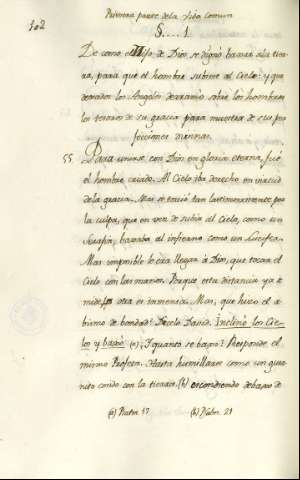 102
Primera parte de la vida comun
§. 1.
De como el Hijo de Dios se dignó baxar a la tie-
rra, para que el hombre subiese al Cielo: y que
descados los Angeles derramó sobre los hombres
los tesoros de su gracia para muestra de sus per
fecciones divinas.
55 Para unirse con Dios en gloria eterna, fué
el hombre criado. Al Cielo iba derecho en virtud
de la gracia. Mas se torció tan lastimosamente por
la culpa, que en vez de subir al Cielo, como un
Serafin, baxaba al infierno como un Lucifer.
Mas imposible le era llegar à Dios, que tocar el
Cielo con las manos. Porque esta distancia ya se
mide, otra es inmensa. Mas, que hizo el a-
bismo de bondad? Decelo David. Inclinó los Cie-
los y baxó (a). Y quanto se baxó? Responde el
mismo Profeta. Hasta humillarse como un gusa-
nito cosido con la tierra. (b) escondiendo debaxo de
(a) Psalm. 17 (b) Psalm. 21